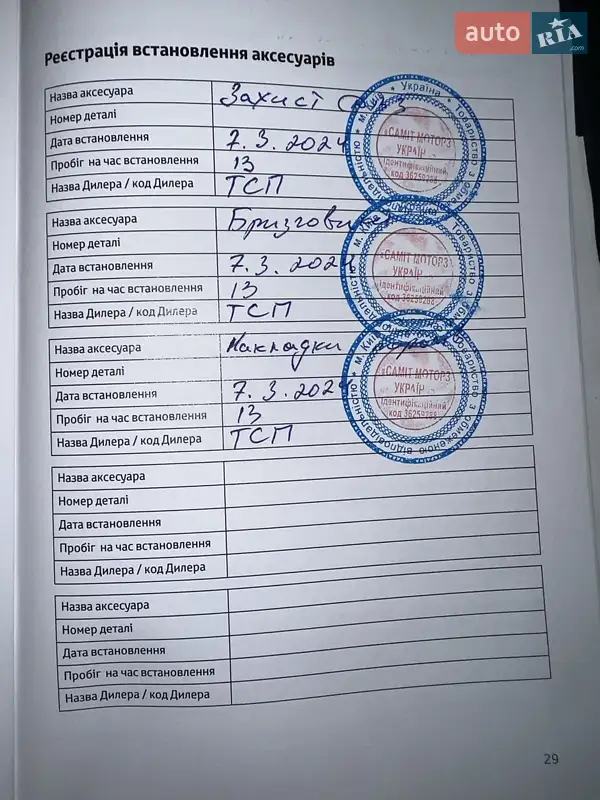 auto RIA .com
Реєстрація встановлення аксесуарів
Назва аксесуара Захист
Номер деталі
Дата встановлення 7.3.2024
Пробіг на час встановлення 13
Назва Дилера / код Дилера ТСП
Назва аксесуара Бризговики
Номер деталі
Дата встановлення 7.3.2024
Пробіг на час встановлення 13
Назва Дилера / код Дилера ТСП
Назва аксесуара Накладки
Номер деталі
Дата встановлення 7.3.2024
Пробіг на час встановлення 13
Назва Дилера / код Дилера ТСП
Назва аксесуара
Номер деталі
Дата встановлення
Пробіг на час встановлення
Назва Дилера / код Дилера
Назва аксесуара
Номер деталі
Дата встановлення
Пробіг на час встановлення
Назва Дилера / код Дилера
м. Київ * Україна * Товариство з обмеженою відповідальністю
«САМІТ МОТОРЗ
УКРАЇН
Ідентифікаційний
код 36259288
«САМІТ МОТОРЗ
УКРАЇН
Ідентифікаційний
код 36259288
«САМІТ МОТОРЗ
УКРАЇН
Ідентифікаційний
код 36259288
29